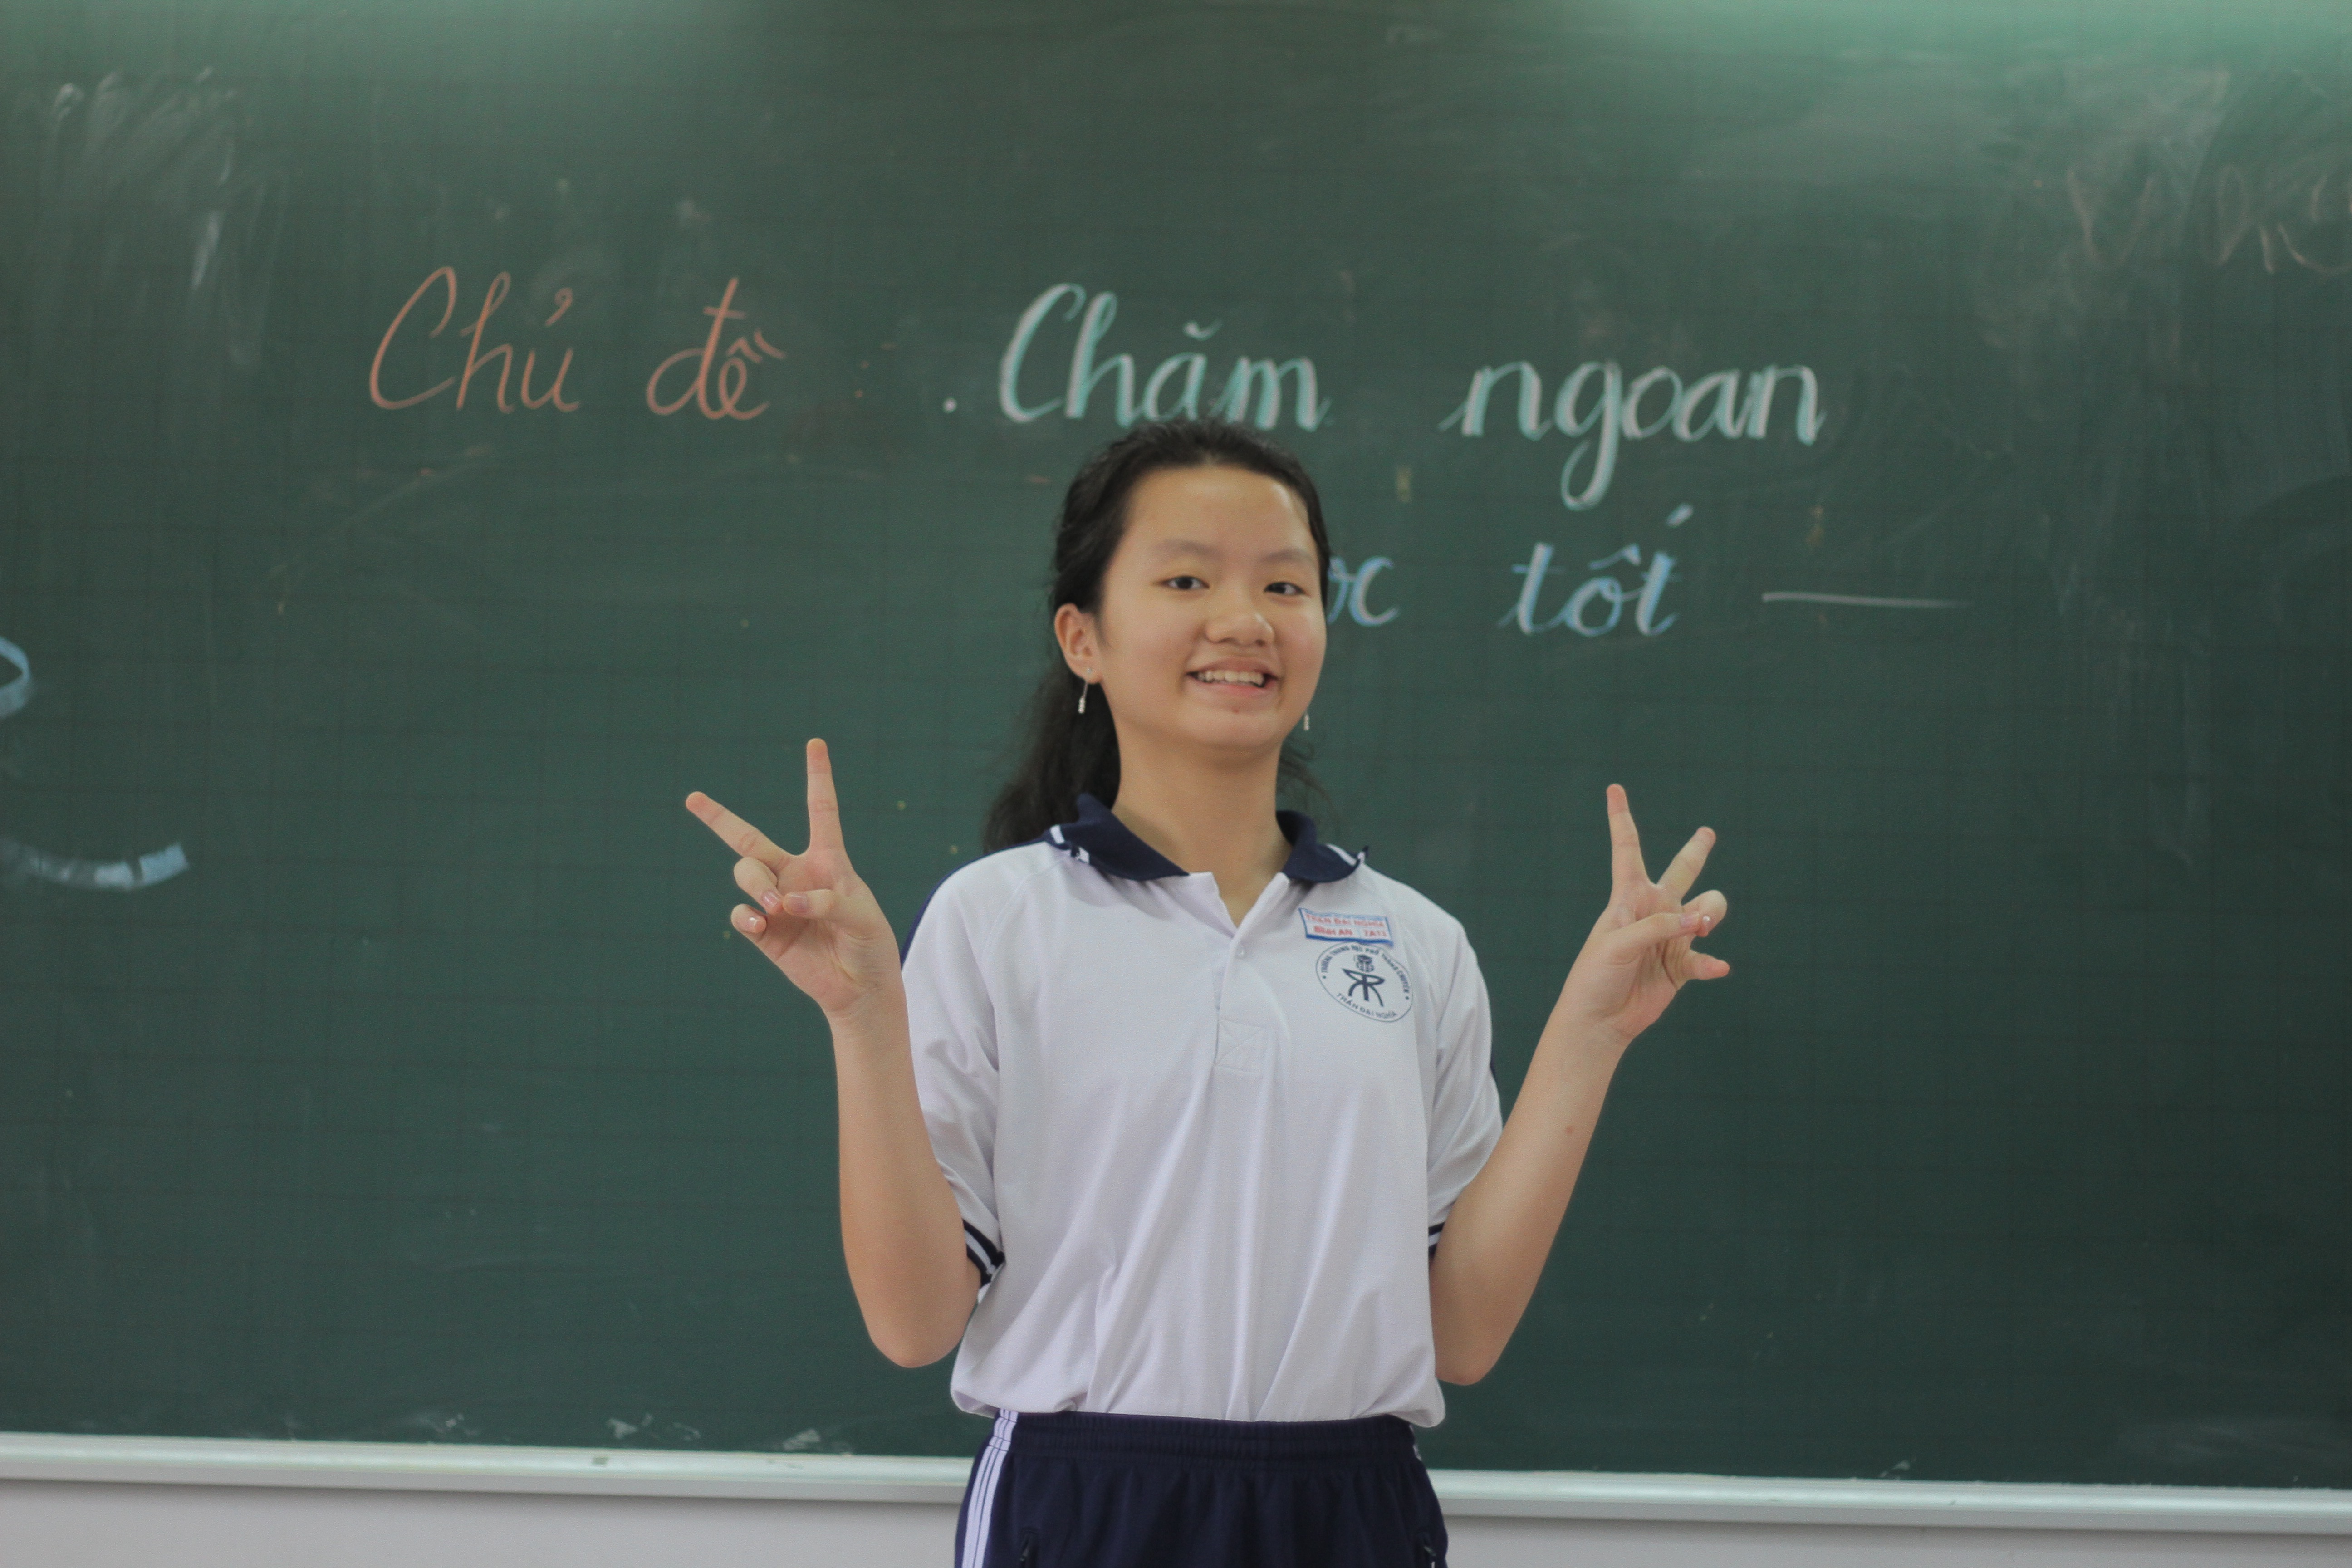 Chủ đề . Chăm ngoan
tốt
TRẦN ĐẠI NGHĨA
TRƯỜNG TRUNG HỌC PHỔ THÔNG CHUYÊN
TRẦN ĐẠI NGHĨA